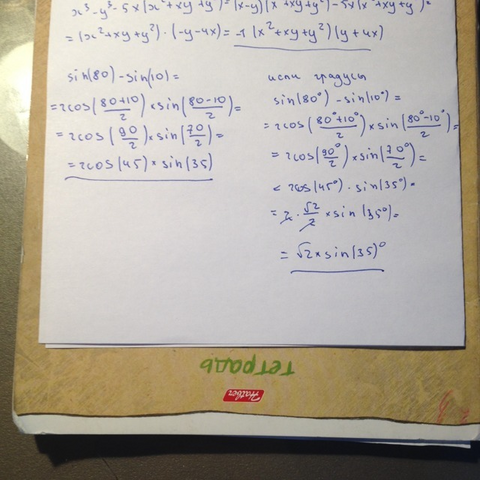 x³-y³-5x(x²+xy+y²)=(x-y)(x²+xy+y²)-5x(x²+xy+y²)=
=(x²+xy+y²)·(-y-4x)=-1(x²+xy+y²)(y+4x)
sin(80)-sin(10)=
=2cos(80+10/2)×sin(80-10/2)=
=2cos(90/2)×sin(70/2)=
=2cos(45)×sin(35)
градусы
sin(80°)-sin(10°)=
=2cos(80°+10°/2)×sin(80°-10°/2)=
=2cos(90°/2)×sin(70°/2)=
=2cos(45°)·sin(35°)=
=2·√2/2×sin(35°)=
=√2×sin(35)°
тетрадь
Hatber